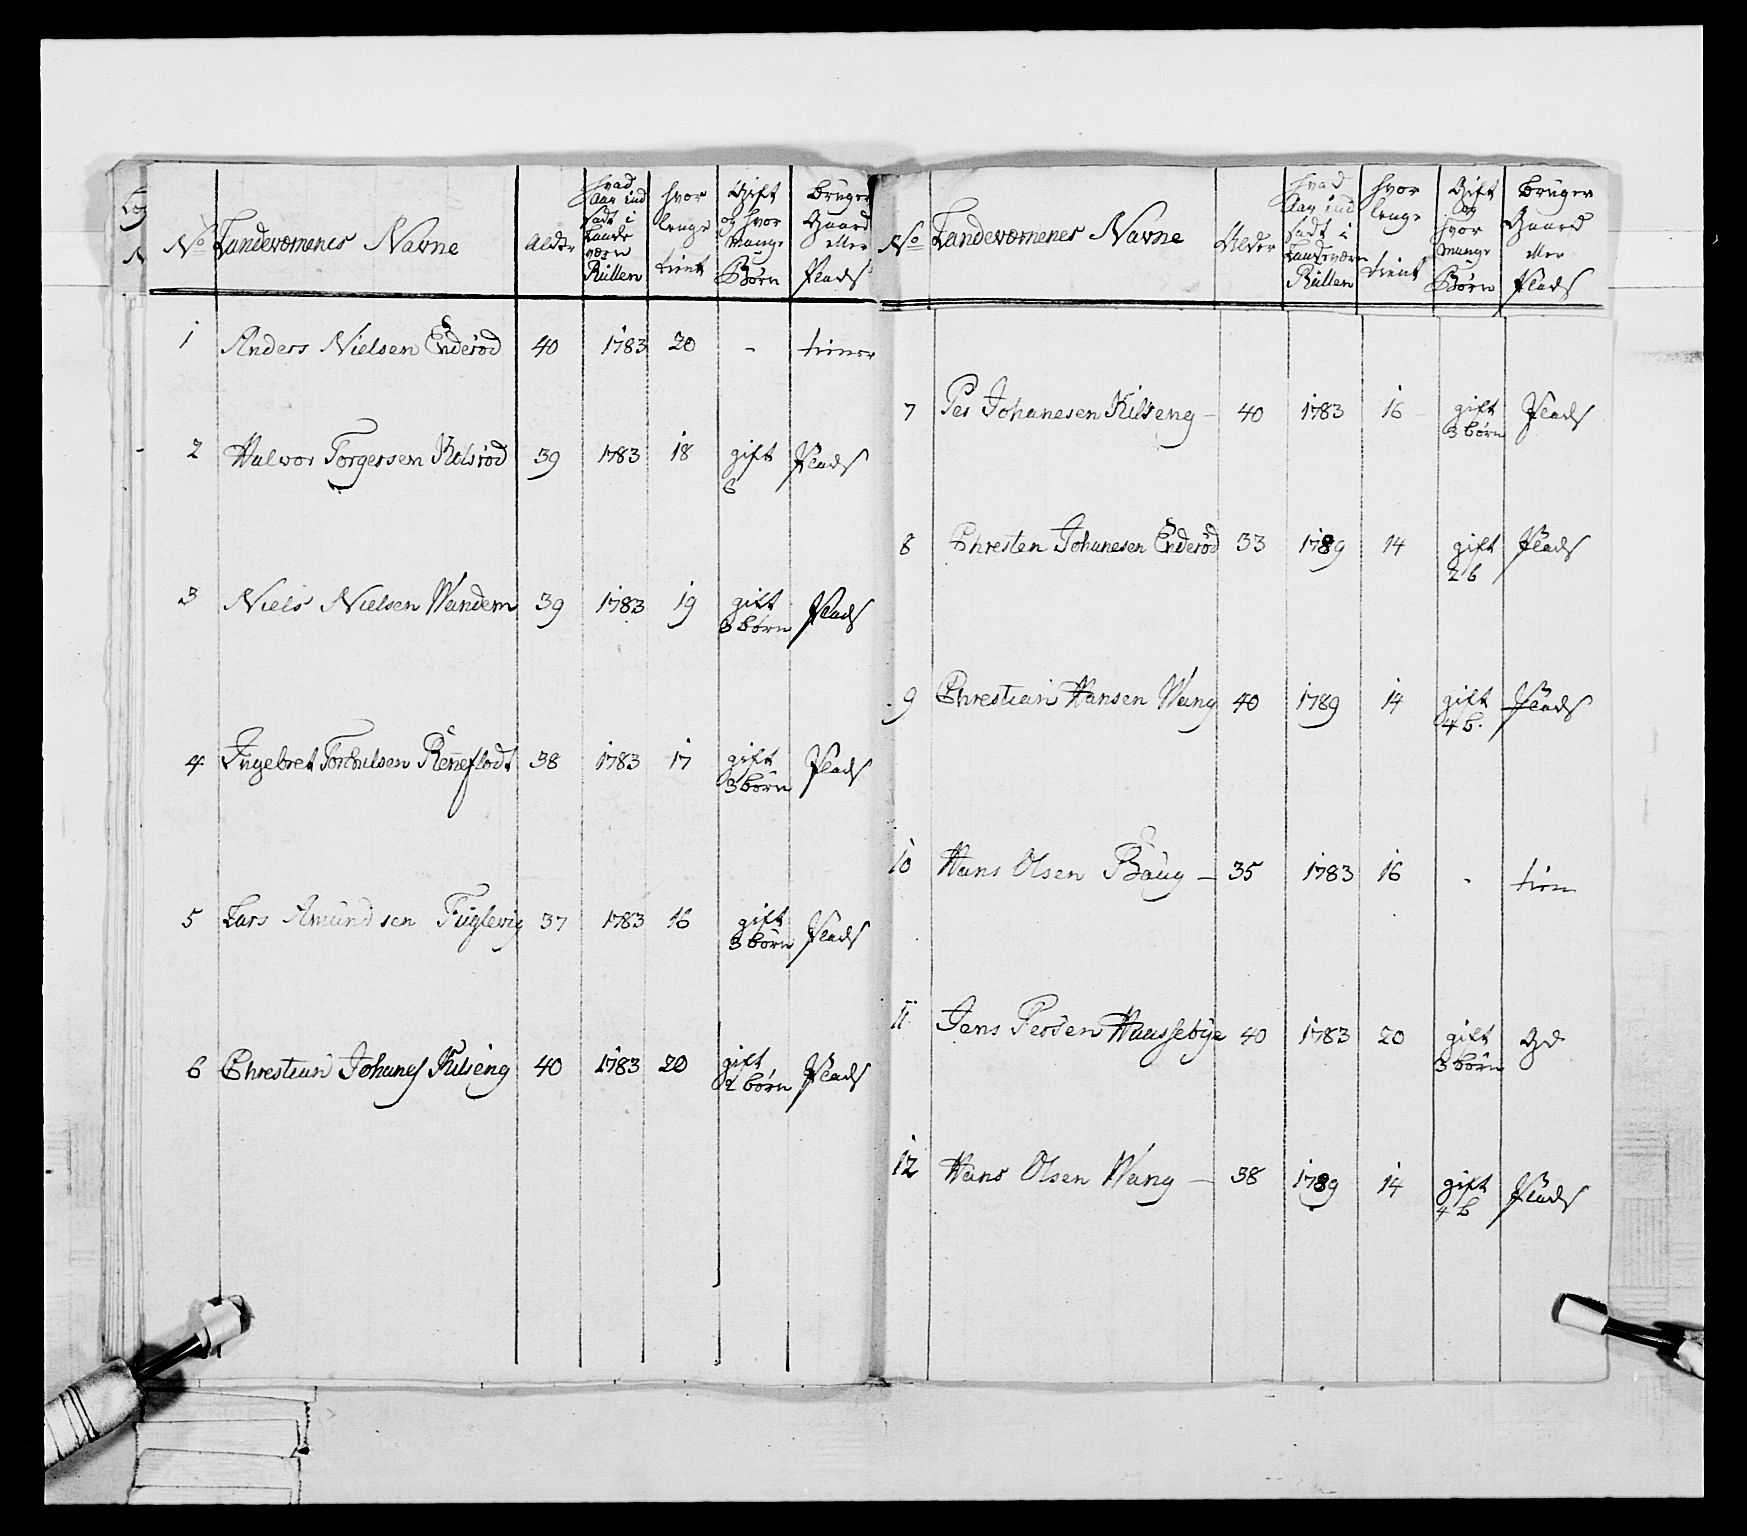 No Landevœrnenes Navne Alder hvad Aar ind sadt i Lande værn Rullen hvor lenge tient Gift og hvor mange Børn Bruger Gaard eller Plads
1 Anders Nielsen Enderød 40 1783 20 - tiener
2 Halvor Torgersen Rolsrød 39 1783 18 gift Plads
6
3 Niels Nielsen Wandem 39 1783 19 gift Plads
3 børn
4 Ingebret Torkilsen Reneflodt 38 1783 17 gift Plads
3 børn
5 Lars Amundsen Fuglevig 37 1783 16 gift Plads
3 børn
6 Chrestian Johanes Kilseng 40 1783 20 gift Plads
2 børn
No Landevœrnenes Navne Alder hvad Aar ind sadt i Landeværn Rullen hvor lenge tient Gift og hvor mange Børn Bruger Gaard eller Plads
7 Per Johanesen Kilseng - 40 1783 16 - gift Plads
3 børn
8 Chresten Johanesen Enderød 33 1789 14 gift Plads
2 b
9 Chrestian Hansen Wang 40 1789 14 gift Plads
4 b.
10 Hans Olsen Baug - 35 1783 16 - tien
11 Jens Persen Haassebye 40 1783 20 gift Gd
3 børn
12 Hans Olsen Wang - 38 1789 14 gift Plads
4 b